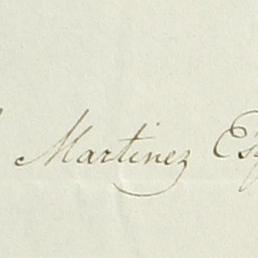 Martinez Esq